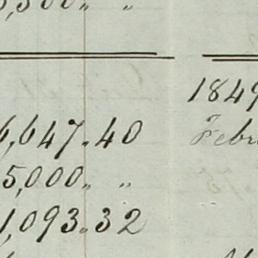 5,500 〃 〃
1849
6,647.40
Febru
5,000 〃 〃
1,093.32